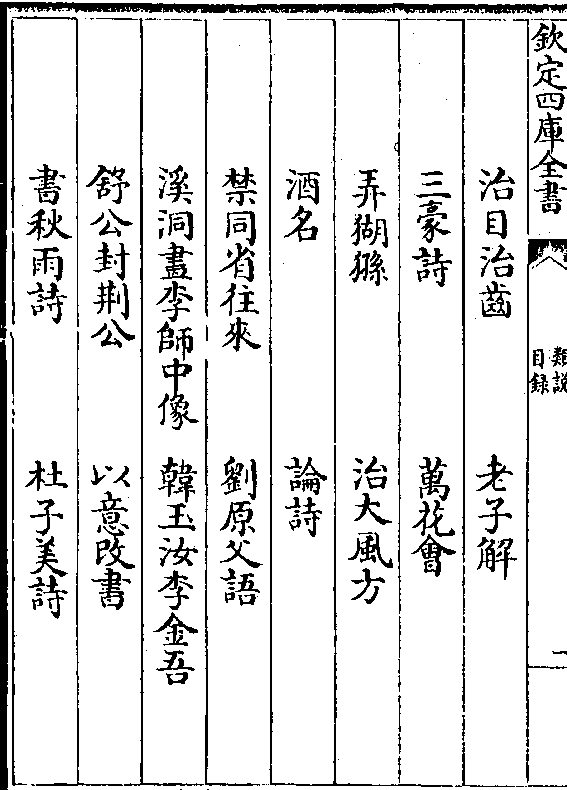 欽定四庫全書
類說
目録
一
治目治齒 老子解
三豪詩 萬花㑹
弄猢猻 治大風方
酒名 論詩
禁同省往來 劉原父語
溪洞畫李師中像 韓玉汝李金吾
舒公封荆公 以意改書
書秋雨詩 杜子美詩